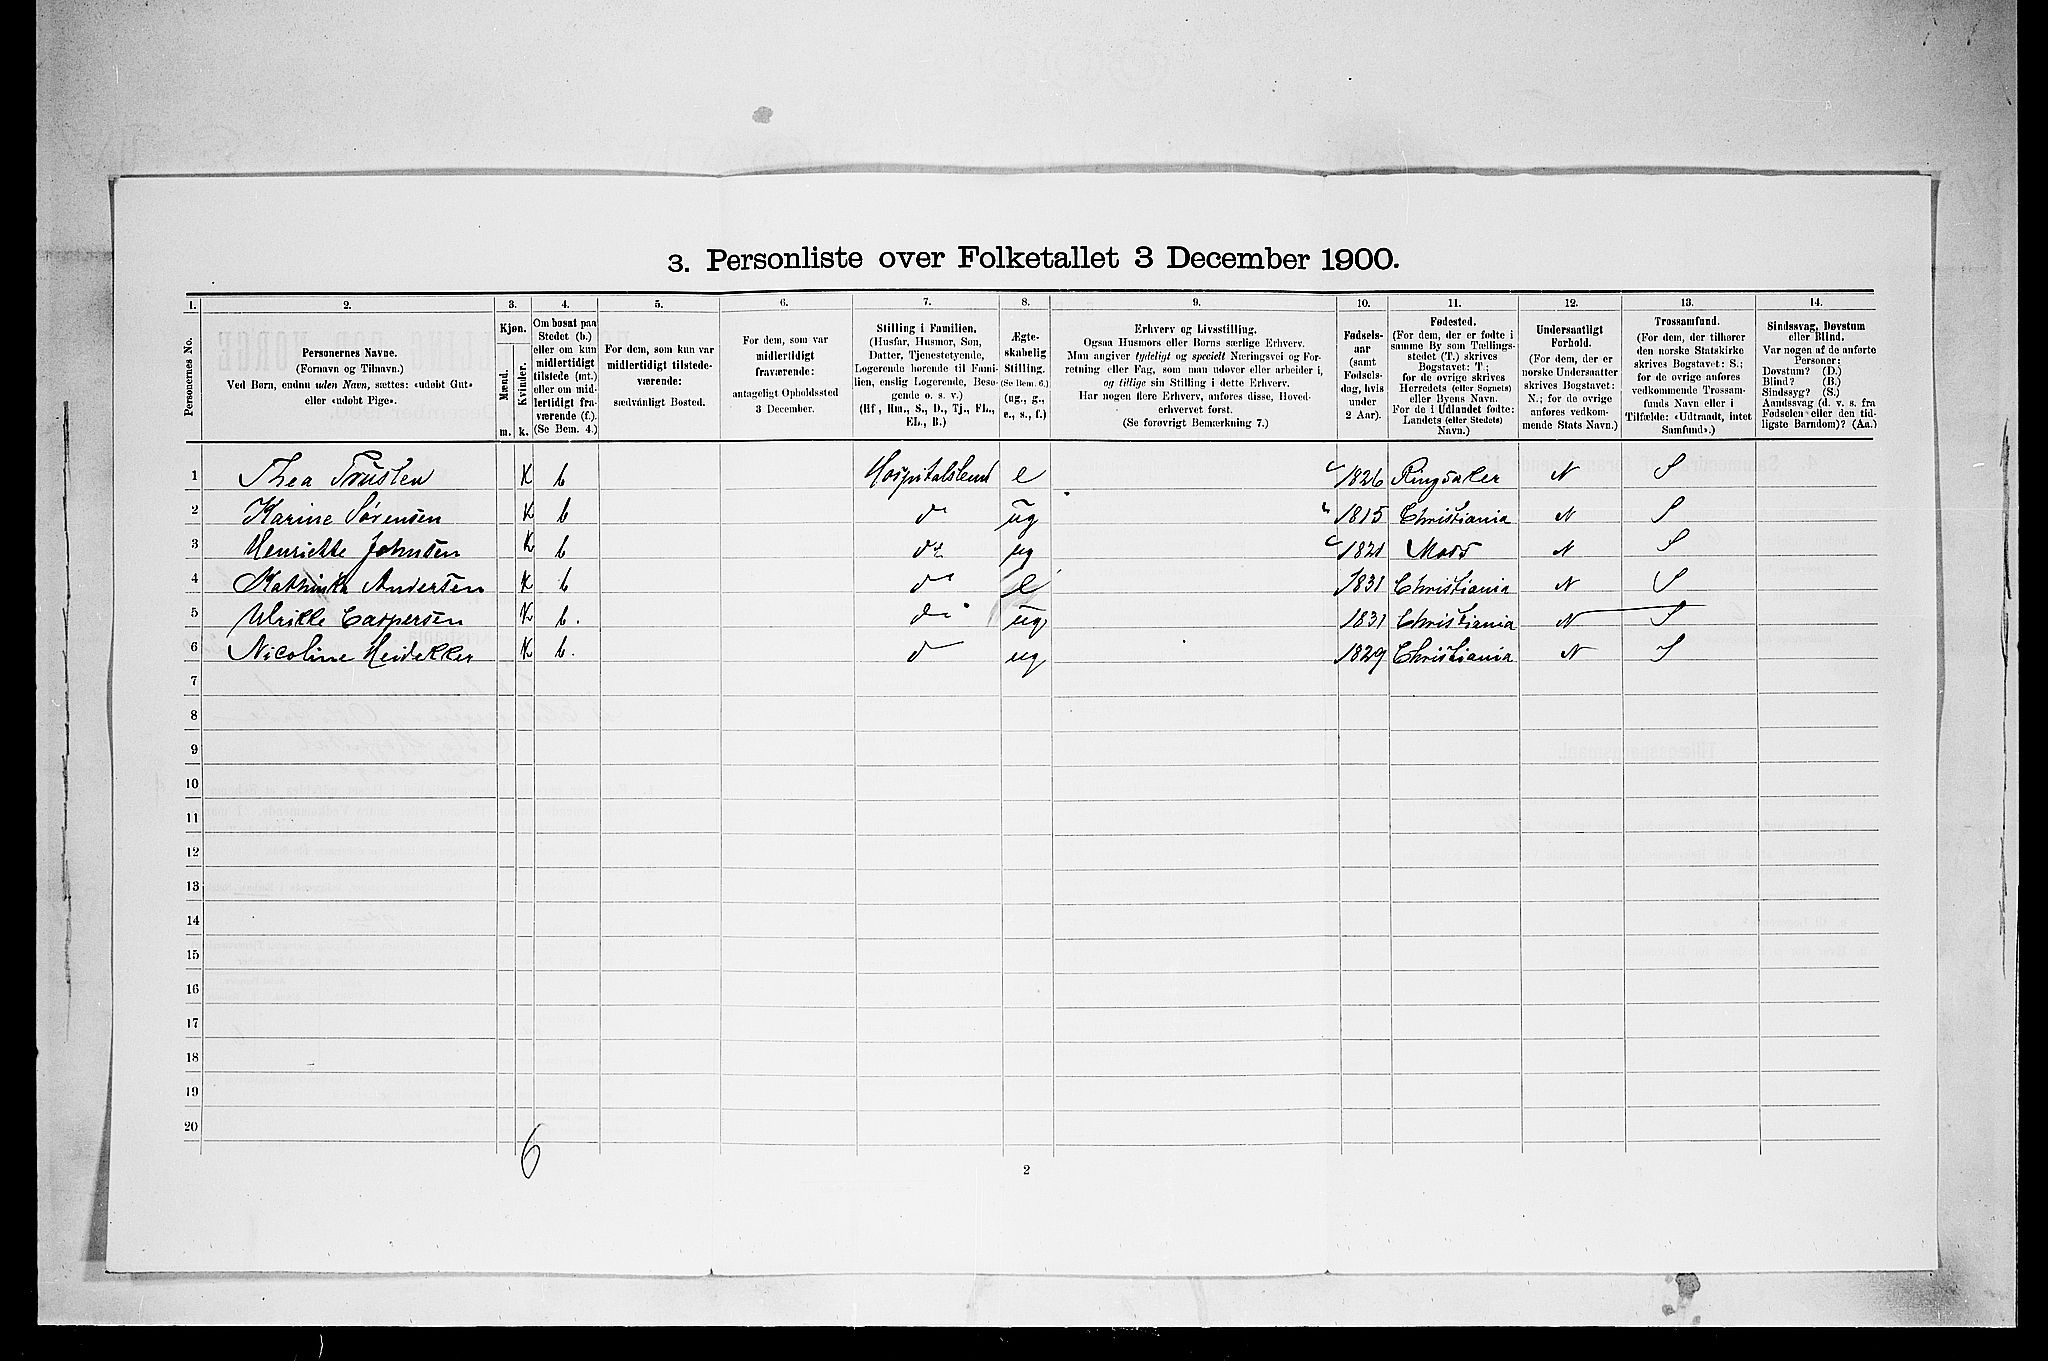 3. Personliste over Folketallet 3 December 1900.
1. 2. 3. 4. 5. 6. 7. 8. 9. 10. 11. 12. 13. 14.
Personernes No.
Personernes Navne.
(Fornavn og Tilnavn.)
Ved Børn, endnu uden Navn, sættes: «udøbt Gut»
eller «udøbt Pige».
Kjøn.
Mænd.
Kvinder.
m. k.
Om bosat paa
Stedet (b.)
eller om kun
midlertidigt
tilstede (mt.)
eller om mid-
lertidigt fra-
værende (f.).
(Se Bem. 4.)
For dem, som kun var
midlertidigt tilstede-
værende:
sædvanligt Bosted.
For dem, som var
midlertidigt
fraværende:
antageligt Opholdssted
3 December.
Stilling i Familien.
(Husfar, Husmor, Søn,
Datter, Tjenestetyende,
Logerende hørende til Fami-
lien, enslig Logerende, Besø-
gende o. s. v.)
(Hf., Hm., S., D., Tj., FL.,
EL., B.)
Ægte-
skabelig
Stilling.
(Se Bem. 6.)
(ug., g.,
e., s., f.)
Erhverv og Livsstilling.
Ogsaa Husmors eller Børns særlige Erhverv.
Man angiver tydeligt og specielt Næringsvei og For-
retning eller Fag, som man udøver eller arbeider i,
og tillige sin Stilling i dette Erhverv.
Har nogen flere Erhverv, anføres disse, Hoved-
erhvervet først.
(Se forøvrigt Bemærkning 7.)
Fødsels-
aar
(samt
Fødsels-
dag, hvis
under
2 Aar).
Fødested.
(For dem, der er fødte i
samme By som Tællings-
stedet (T.) skrives
Bogstavet: T.;
for de øvrige skrives
Herredets (eller Sognets)
eller Byens Navn.
For de i Udlandet fødte:
Landets (eller Stedets)
Navn.)
Undersaatligt
Forhold.
(For dem, der er
norske Undersaatter
skrives Bogstavet:
N.; for de øvrige
anføres vedkom-
mende Stats Navn.)
Trossamfund.
(For dem, der tilhører
den norske Statskirke
skrives Bogstavet: S.;
for de øvrige anføres
vedkommende Trossam-
funds Navn eller i
Tilfælde: «Udtraadt, intet
Samfund».)
Sindssvag, Døvstum
eller Blind.
Var nogen af de anførte
Personer:
Døvstum? (D.)
Blind? (B.)
Sindssyg? (S.)
Aandssvag (d. v. s. fra
Fødselen eller den tid-
ligste Barndom)? (Aa.)
1 Thea K b e 1826 Ringsaker N S
2 Karine Sørensen K b do ug 1815 Christiania N S
3 Henriette Johnsen K b do ug 1821 Moss N S
4 Kathinka Andersen K b do e 1831 Christiania N S
5 Ulrikke Caspersen K b. do ug 1831 Christiania N S
6 Nicoline K b. do ug 1829 Christiania N S
7
8
9
10
11
12
13
14
15
16
17
18
19
20
6
2